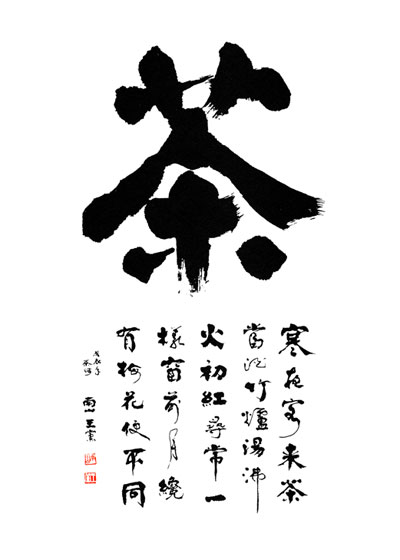 茶
寒夜客来茶
當酒竹爐湯沸
火初紅尋常一
樣窗前月纔
有梅花便不同